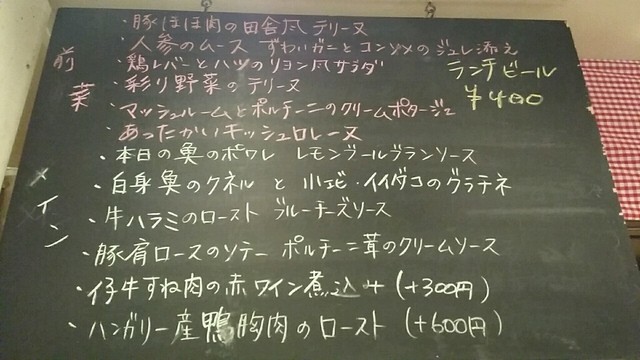 前菜
・豚ほほ肉の田舎風テリーヌ
・人参のムース ずわいガニとコンソメのジュレ添え
・鶏レバーとハツのリヨン風サラダ
・彩り野菜のテリーヌ
・マッシュルームとポルチーニのクリームポタージュ
・あったかいキッシュロレーヌ
ランチビール
¥400
メイン
・本日の魚のポワレ レモンブールブランソース
・白身魚のクネルと小エビ・イイダコのグラチネ
・牛ハラミのロースト ブルーチーズソース
・豚肩ロースのソテー ポルチーニ茸のクリームソース
・仔牛すね肉の赤ワイン煮込み (+300円)
・ハンガリー産鴨胸肉のロースト (+600円)